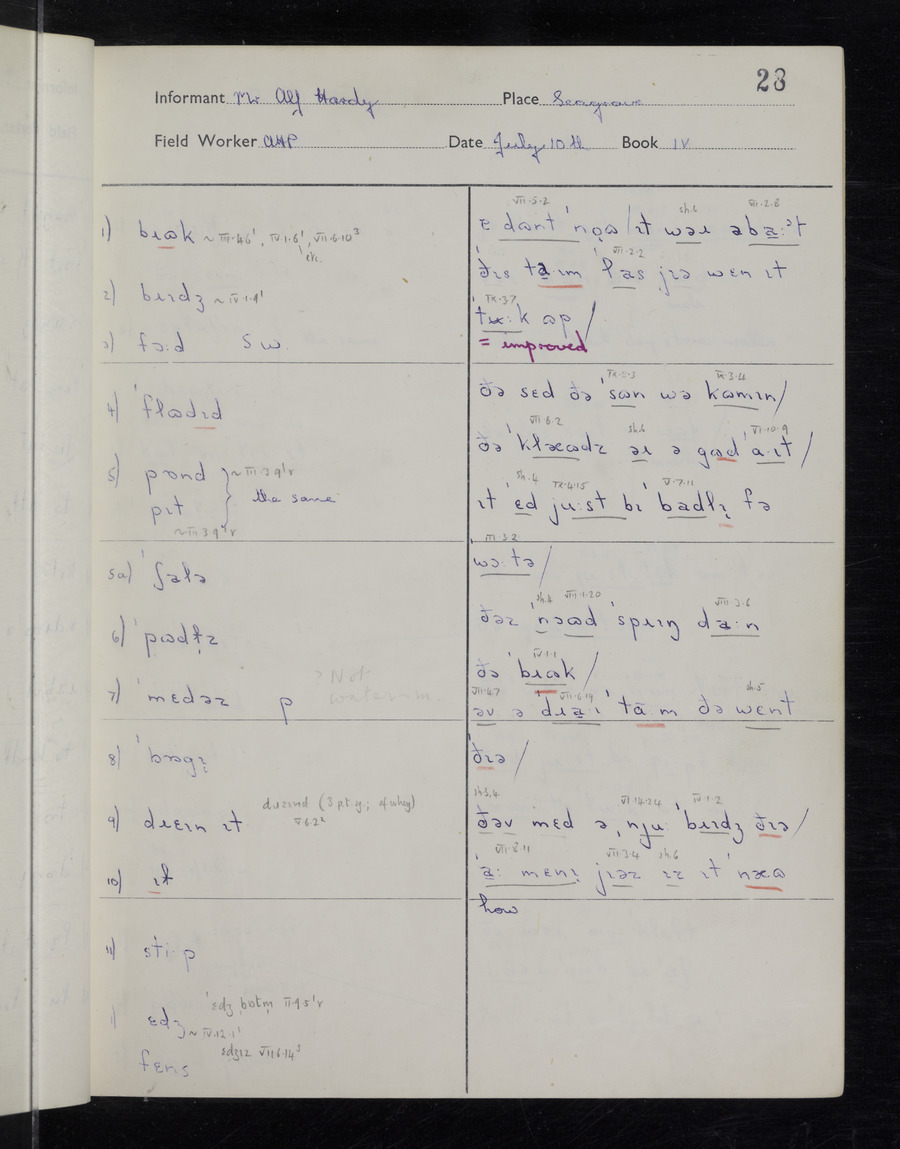 28
Informant Mr Alf Hardy Place Seagrave
Field Worker AHP Date July 10th Book IV
1) bɹɷk ~ III·4·6¹, IV·1·6¹, VII·6·10³
etc.
2) bɹɪdʒ ~ IV·1·9¹
3) fɔːd S W.
4) ˈflɷdɪd
5) pɒnd ~ III·3·9¹r
pɪt } the same
~ III·3·9¹r
5a) ˈʃalə
6) ˈpɷdɫz
7) ˈmɛdəz p ? Not
8) ˈbɒgɪ
9) dɹɛɪn ɪt
V·6·2²
10) ɪt
11) stiːp
ˈɛdʒ ˌbɒtm̩ II·9·5¹r
1) ɛdʒ ~ IV·12·1¹
ɛdʒɪz VII·6·14³
fɛns
VII·5·2 sh.6 VII·2·8
ɪ dɒnt ˈnɒɷ / ɪt wəɹ əbaːᵊt
VII·2·2
ˈðɪs taːɪm ˈlas jɪə wɛn ɪt
IX·3·7
ˈtuːk ɷp /
= improved
IX·5·3 IX·3·4
ðə sɛd ðə ˈsɷn wə kɷmɪn /
VII·6·2 sh.6 VI·10·9
ðə ˈklæɷdz əɹ ə gɷd ˈaːɪt /
sh.4 IX·4·15 V·7·11
ɪt ˈɛd juːst bɪ ˈbadlɪ fə
III·3·2
wɔːtə /
sh.4 VIII·1·20 VIII·3·6
ðəz ˈnɔɷd ˈspɹɪŋ daːn
IV·1·1
ðə ˈbɹɷk /
VII·4·7 VII·6·19 sh.5
əv ə ˈdɹaːɪ ˈtaːm ðə wɛnt
ˈðɪə /
sh.3,4 VI·14·24 IV·1·2
ðəv mɛd ə ˌnjuː ˈbɹɪdʒ ðɪə /
VII·8·11 VII·3·4 sh.6
ˈaː mɛnɪ jɪəz ɪz ɪt ˈnæɷ
how